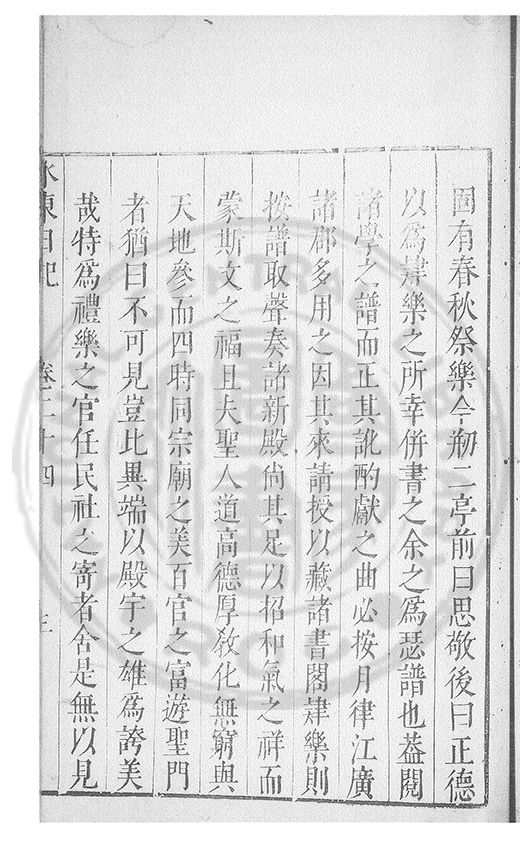 固有春秋祭樂今剏二亭前曰思敬後曰正德
以為肄樂之所幸併書之余之為瑟譜也葢閱
諸學之譜而正其訛酌獻之曲必按月律江廣
諸郡多用之因其來請授以藏諸書閣肄樂則
按譜取聲奏諸新殿尙其足以招和氣之祥而
蒙斯文之福且夫聖人道高德厚敎化無窮與
天地參而四時同宗廟之美百官之富遊聖門
者猶曰不可見豈比異端以殿宇之雄為誇美
哉特為禮樂之官任民社之寄者舍是無以見
水東日記 卷二十四 三